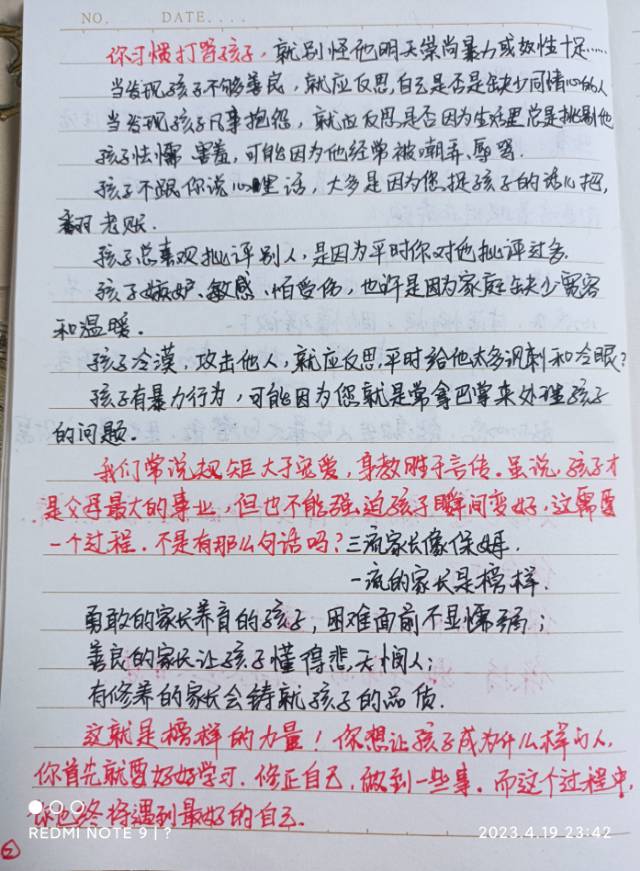 NO.  DATE....
你习惯打骂孩子,就别怪他明天崇尚暴力或奴性十足……
当发现孩子不够善良,就应反思,自己是否是缺少同情心的人
当发现孩子凡事抱怨,就应反思是否因为生活里总是挑剔他
孩子怯懦、害羞,可能因为他经常被嘲弄、辱骂.
孩子不跟你说心里话,大多是因为您捉孩子的话把,
翻老账.
孩子总喜欢批评别人,是因为平时你对他批评过多.
孩子嫉妒、敏感、怕受伤,也许是因为家庭缺少宽容
和温暖.
孩子冷漠,攻击他人,就应反思,平时给他太多讽刺和冷眼?
孩子有暴力行为,可能因为您就是常拿巴掌来处理孩子
的问题.
我们常说规矩大于宠爱,身教胜于言传.虽说,孩子才
是父母最大的事业,但也不能强迫孩子瞬间变好,这需要
一个过程.不是有那么句话吗?三流家长像保姆.
一流的家长是榜样.
勇敢的家长养育的孩子,困难面前不显懦弱;
善良的家长让孩子懂得悲天悯人;
有修养的家长会铸就孩子的品质.
这就是榜样的力量!你想让孩子成为什么样的人,
你首先就要好好学习.修正自己,做到一些事.而这个过程中,
你也终将遇到最好的自己.
REDMI NOTE 9 | ?
2023.4.19 23:42
2